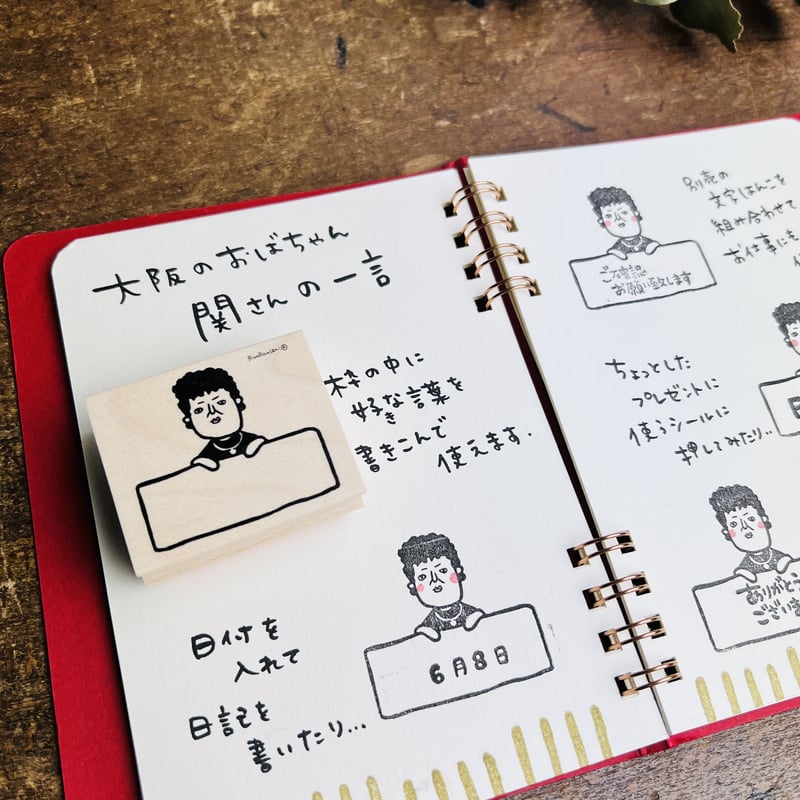 大阪のおばちゃん
関さんの一言
枠の中に
好きな言葉を
書きこんで
使えます.
日付を
入れて
日記を
書いたり...
6月8日
別売の
文字はんこを
組み合わせて
お仕事にも
ご確認
お願い致します
ちょっとした
プレゼントに
使うシールに
押してみたり..
ありがとう
ござい